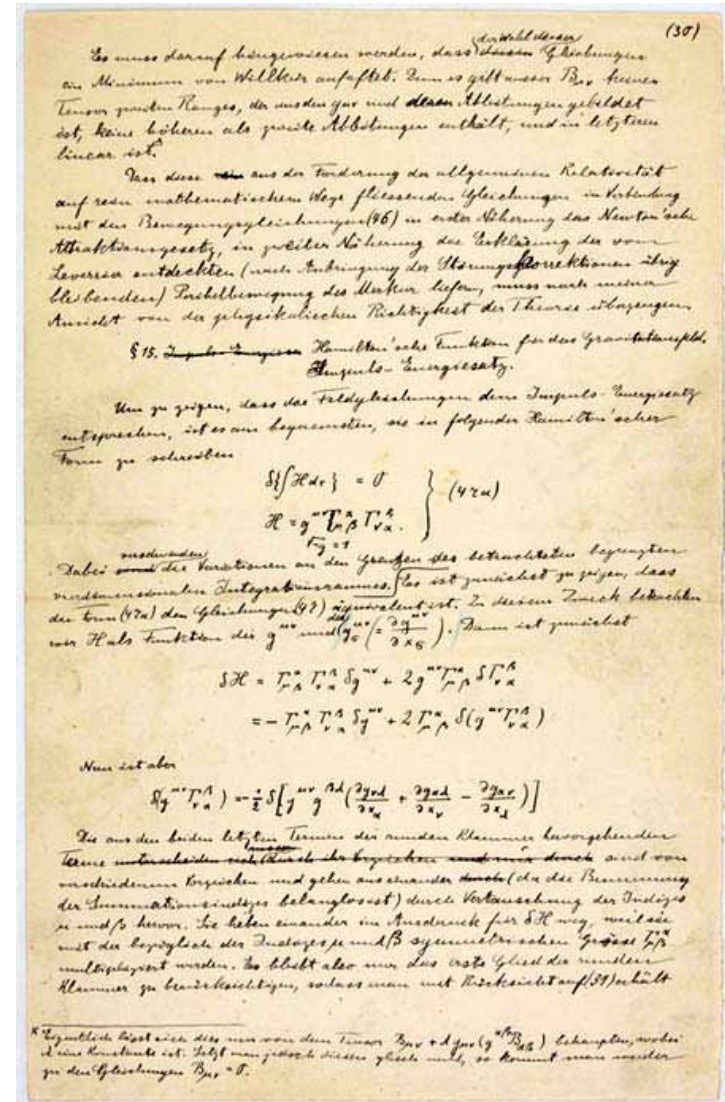 (30)
der Wahl dieser
Es muss darauf hingewiesen werden, dass diesen Gleichungen
ein Minimum von Willkür anhaftet. Denn es gibt ausser B_μν keinen
Tensor zweiten Ranges, der aus den g_μν und deren Ableitungen gebildet
ist, keine höheren als zweite Ableitungen enthält, und in letzteren
linear ist.*
Dass diese aus der Forderung der allgemeinen Relativität
auf rein mathematischem Wege fliessenden Gleichungen in Verbindung
mit den Bewegungsgleichungen (46) in erster Näherung das Newton'sche
Attraktionsgesetz, in zweiter Näherung die Erklärung der von
Leverrier entdeckten (nach Anbringung der Störungskorrektionen übrig
bleibenden) Perihelbewegung des Merkur liefern, muss nach meiner
Ansicht von der physikalischen Richtigkeit der Theorie überzeugen.
§ 15. Impuls-Energie Hamilton'sche Funktion für das Gravitationsfeld.
Impuls-Energiesatz.
Um zu zeigen, dass die Feldgleichungen dem Impuls-Energiesatz
entsprechen, ist es am bequemsten, sie in folgender Hamilton'scher
Form zu schreiben
δ{∫H dτ} = 0
H = g^μν Γ^α_μβ Γ^β_να. } (47a)
√-g = 1
verschwinden
Dabei sind die Variationen an den Grenzen des betrachteten begrenzten
vierdimensionalen Integrationsraumes. Es ist zunächst zu zeigen, dass
die Form (47a) den Gleichungen (47) äquivalent ist. Zu diesem Zweck betrachten
wir H als Funktion der g^μν und der g^μν_σ (= ∂g^μν/∂x_σ). Dann ist zunächst
δH = Γ^α_μβ Γ^β_να δg^μν + 2g^μν Γ^α_μβ δΓ^β_να
= - Γ^α_μβ Γ^β_να δg^μν + 2 Γ^α_μβ δ(g^μν Γ^β_να)
Nun ist aber
δ(g^μν Γ^β_να) = -1/2 δ[g^μν g^βλ (∂g_νλ/∂x_α + ∂g_αλ/∂x_ν - ∂g_αν/∂x_λ)]
Die aus den beiden letzten Termen der runden Klammer hervorgehenden
Terme unterscheiden sich durch ihr Vorzeichen und nur durch sind von
verschiedenem Vorzeichen und gehen auseinander durch (da die Benennung
der Summationsindizes belanglos ist) durch Vertauschung der Indizes
μ und β hervor. Sie heben einander im Ausdruck für δH weg, weil sie
mit der bezüglich der Indizes μ und β symmetrischen Grösse Γ^α_μβ
multipliziert werden. Es bleibt also nur das erste Glied der runden
Klammer zu berücksichtigen, sodass man mit Rücksicht auf (31) erhält
* Eigentlich lässt sich dies nur von dem Tensor B_μν + λ g_μν (g^αβ B_αβ) behaupten, wobei
λ eine Konstante ist. Setzt man jedoch diesen gleich null, so kommt man wieder
zu den Gleichungen B_μν = 0.